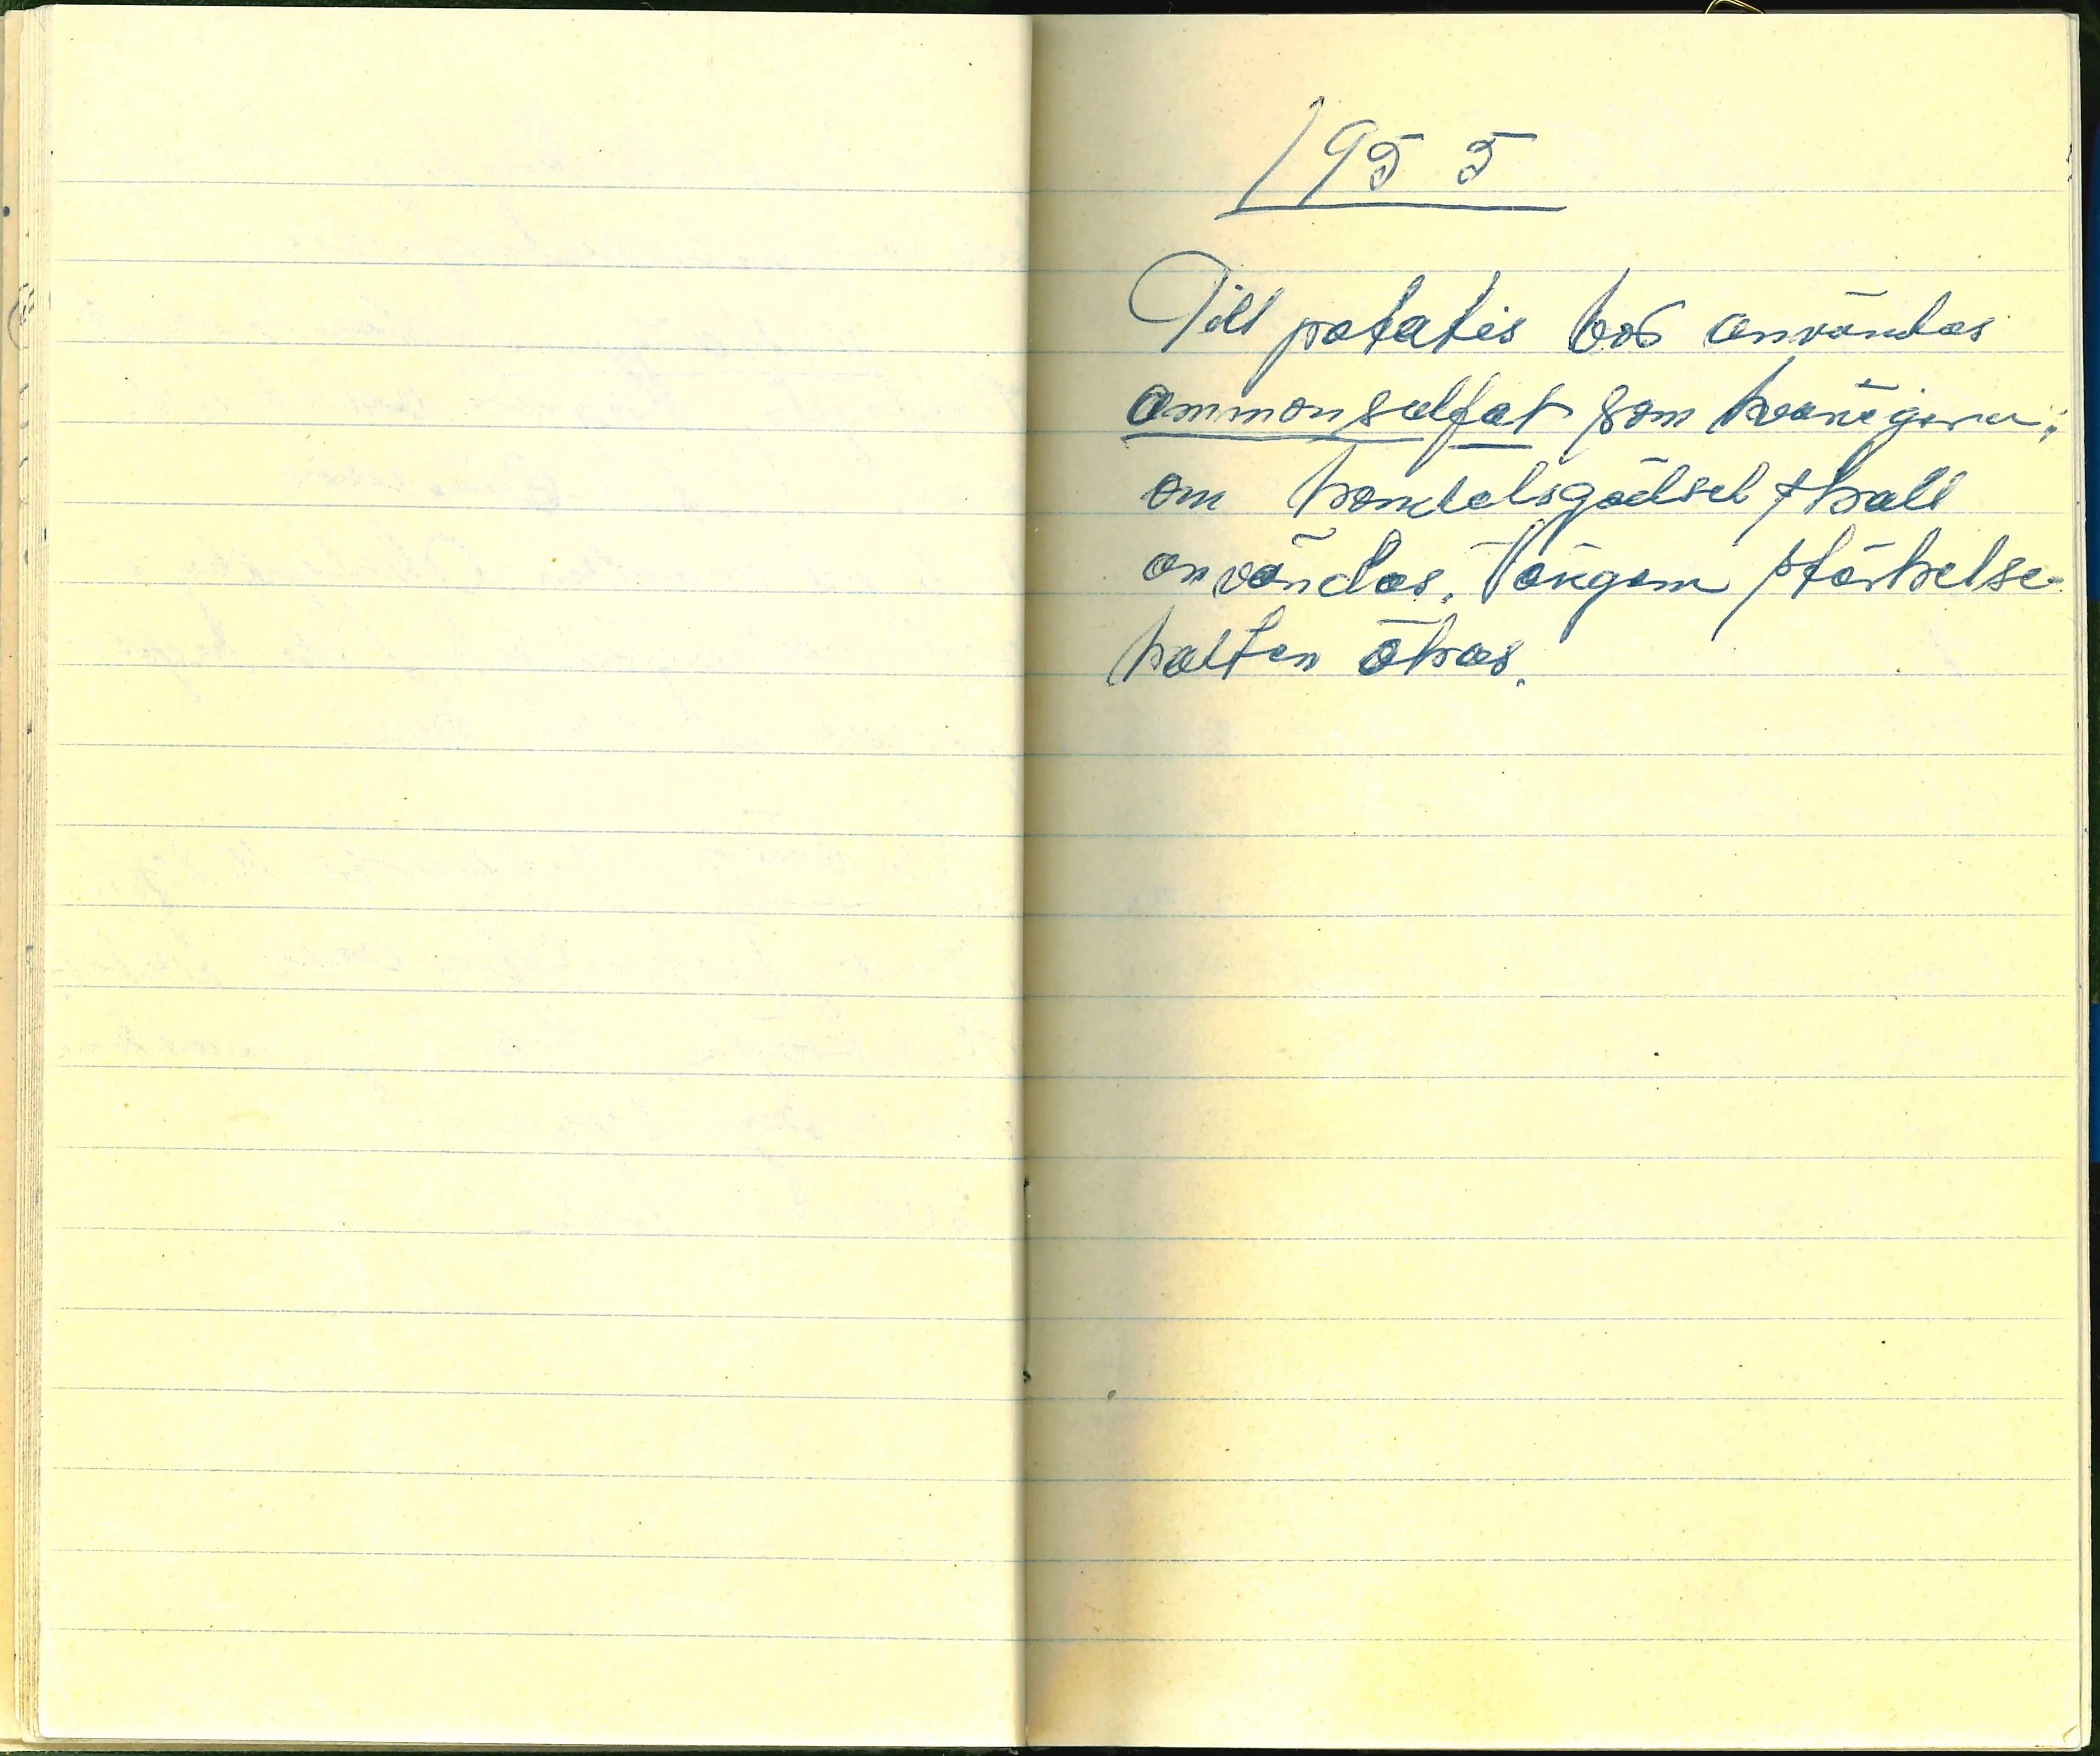 1955
Till potatis bör användas
ammonsulfat som kvävegiva;
om handelsgödsel skall
användas. Tÿ genom stärkelse-
halten ökas.